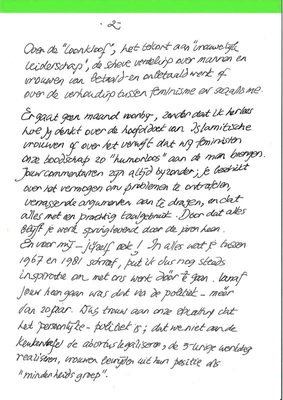 - 2 -
Over de "loonkloof", het tekort aan "vrouwelijk
leiderschap", de scheve verdeling over mannen en
vrouwen van betaald en onbetaald werk of
over de verhouding tussen feminisme en
Er gaat geen maand voorbij, zonder dat ik herlees
hoe jij denkt over de hoofddoek van Islamitische
vrouwen of over het verwijt dat wij feministen
onze boodschap zo "humorloos" aan de man brengen.
Jouw commentaren zijn altijd bijzonder; je beschikt
over het vermogen om problemen te ontrafelen,
verrassende argumenten aan te dragen, en dat
alles met een prachtig taalgebruik. Door dat alles
blijft je werk springlevend door de jaren heen.
En voor mij - jijzelf ook! In alles wat je tussen
1967 en 1981 schreef, put ik dus nog steeds
inspiratie om met ons werk dóór te gaan. Vanaf
jouw heengaan was dat via de politiek - méér
dan zo'n jaar. Dus, trouw aan onze stelling dat
het persoonlijke - politiek is; dat we niet aan de
keukentafel de abortus legaliseren, de 5-urige werkdag
realiseren, vrouwen bevrijden uit hun positie als
"minderheids groep".